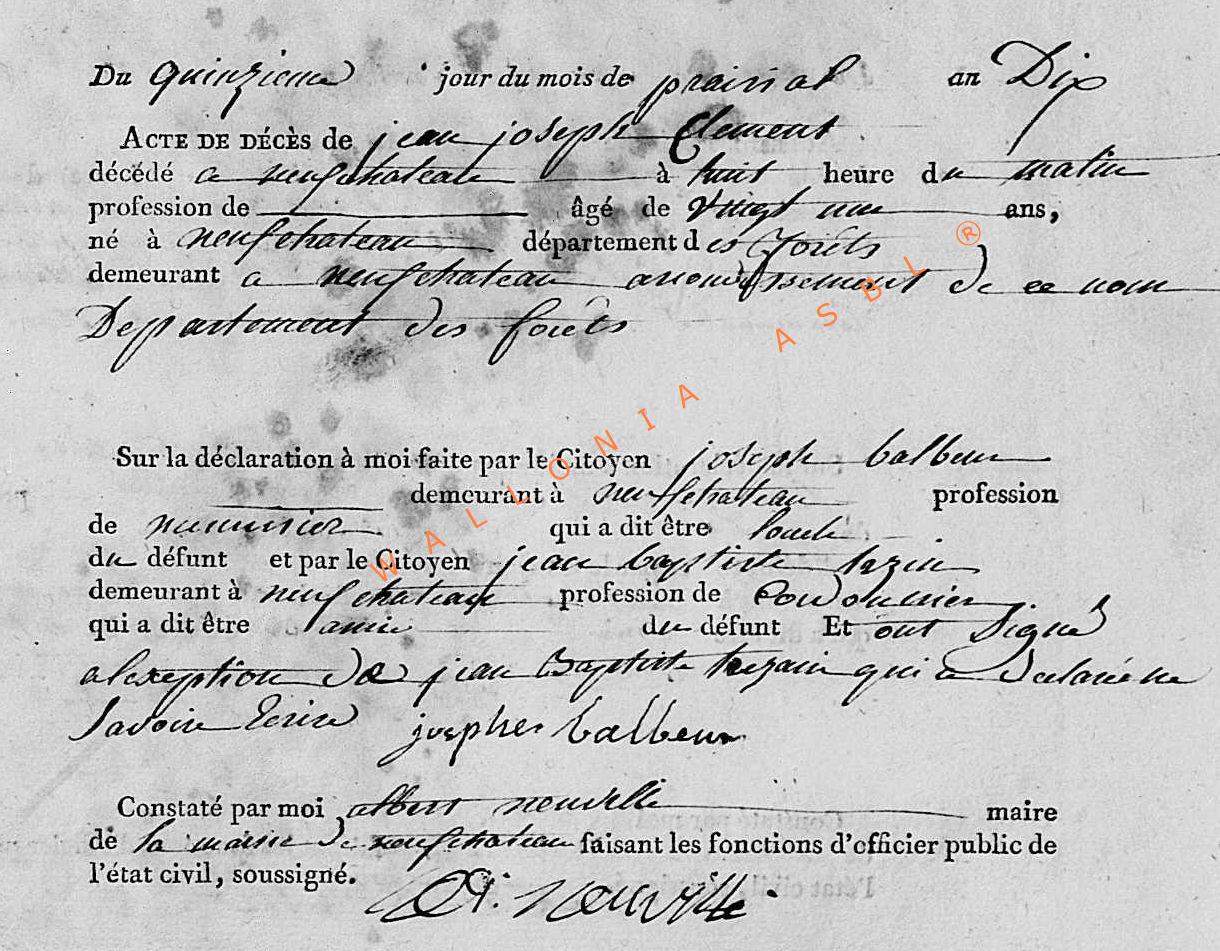 Du quinzieme jour du mois de prairial an Dix
ACTE DE DÉCÈS de jean joseph Clement
décédé a neufchateau à huit heure du matin
profession de âgé de vingt une ans,
né à neufchateau département des forêts
demeurant a neufchateau arrondissement de ce nom
Departement des forêts
Sur la déclaration à moi faite par le Citoyen joseph balbeur
demeurant à neufchateau profession
de menuisier qui a dit être l'oncle
du défunt et par le Citoyen jean baptiste
demeurant à neufchateau profession de Cordonnier
qui a dit être amie du défunt Et ont Signé
alexeption de jean Baptiste qui a declaré ne
Savoire Ecrire josphe balbeur
Constaté par moi albert neuville maire
de la mairie de neufchateau faisant les fonctions d'officier public de
l'état civil, soussigné. A. Neuville
WALLONIA ASBL ®